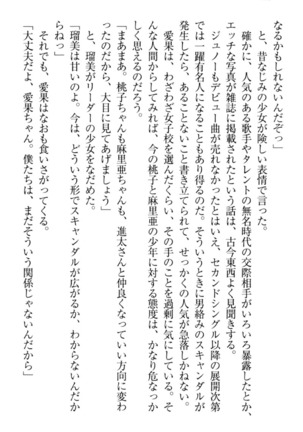 らなくもないんだぞっ」
と、昔なじみの少女が険しい表情で言った。
確かに、人気のある歌手やタレントの無名時代の交際相手がいろいろ暴露したとか、
エッチな写真が雑誌に掲載されたという話は、古今東西よく見聞きする。
ジュノーもデビュー曲が売れなかったとはいえ、セカンドシングル以降の展開次第
では一躍有名人になることもあり得るのだ。そういうときに男絡みのスキャンダルが
発生したら、あることないこと書き立てられて、せっかくの人気が急落しかねない。
愛果は、わざわざ女子校を選んだくらい、その手のことを過剰に気にしている。そ
んな人間からしてみれば、今の桃子と麻里亜の少年に対する態度は、かなり危なっか
しく思えるのだろう。
「まあまあ。桃子ちゃんも麻里亜ちゃんも、進太さんと仲良くなっていい方向に変わ
ったのだから、大目に見てあげましょう」
と、瑠美がリーダーの少女をなだめた。
「瑠美は甘いのよ。今は、どういう形でスキャンダルが広がるか、わからないんだか
らねっ」
それでも、愛果はなおも食いさがってくる。
「大丈夫だよ、愛果ちゃん。僕たちは、まだそういう関係じゃないんだから」